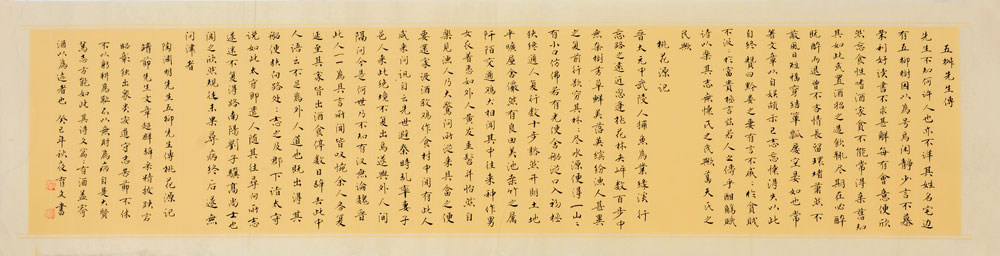 五柳先生傳
先生不知何許人也亦不詳其姓名宅邊
有五柳樹因以為号焉閑靜少言不慕
榮利好讀書不求甚解每有會意便欣
然忘食性嗜酒家貧不能常得親舊知
其如此或置酒招之造飲輒尽期在必醉
既醉而退曾不吝情去留環堵蕭然不
蔽風日短褐穿結簞瓢屢空晏如也常
著文章以自娛頗示己志忘懷得失以此
自終贊曰黔婁之妻有言不戚戚於貧賤
不汲汲於富貴極其言茲若人之儔乎酣觴賦
詩以樂其志無懷氏之民歟葛天氏之
民歟
桃花源記
晉太元中武陵人捕魚為業緣溪行
忘路之遠近忽逢桃花林夾岸數百步中
無杂樹芳草鮮美落英繽紛漁人甚異
之復前行欲窮其林林尽水源便得一山山
有小口仿佛若有光便舍船從口入初極
狹終通人復行數十步豁然開朗土地
平曠屋舍儼然有良田美池桑竹之屬
阡陌交通鷄犬相聞其中往來種作男
女衣著悉如外人黃髮垂髫並怡然自
樂見漁人乃大驚問所從來具答之便
要還家設酒殺鷄作食村中聞有此人
咸來問訊自云先世避秦時亂率妻子
邑人來此絕境不復出焉遂與外人间
隔問今是何世乃不知有漢無論魏晉
此人一一為具言所聞皆叹惋余人各復
延至其家皆出酒食停數日辭去此中
人語云不足為外人道也既出得其
船便扶向路处处志之及郡下詣太守
說如此太守即遣人隨其往尋向所志
遂迷不復得路南陽劉子驥高尚士也
聞之欣然規往未果尋病終后遂無
問津者
陶淵明先生五柳先生傳桃花源記
靖節先生文章超群辭采精拔跌宕
昭彰独出衆类安道守志苦節不休
不以躬耕為恥不以無財為病自是大賢
篤志方能如此其詩文各有酒盖寄
酒以為迹者也 癸巳年秋夜有文書